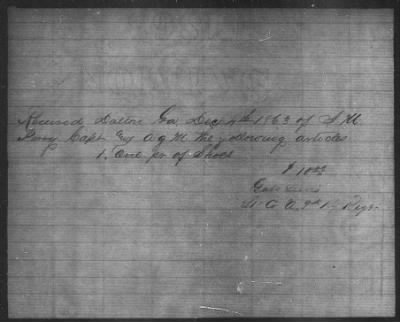 Received Dalton Ga Dec 4th 1863 of S M
Capt & A Q M the following articles
1. One pr of Shoes
$ 10.00
Lt Co A. 9th Ky Regt